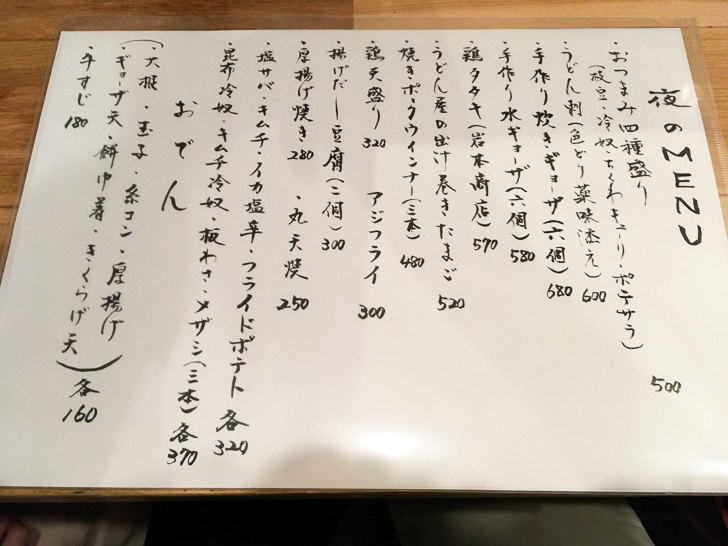 夜のMENU
・おつまみ四種盛り
(枝豆・冷奴・ちくわキューリ・ポテサラ) 500
・うどん刺(色どり薬味添え) 600
・手作り炊きギョーザ(六個) 680
・手作り水ギョーザ(六個) 580
・鶏タタキ(岩本商店) 570
・うどん屋の出汁巻きたまご 520
・焼きポークウインナー(三本) 480
・鶏天盛り 320 アジフライ 300
・揚げだし豆腐(二個) 300
・厚揚げ焼き 280 ・丸天焼 250
・塩サバ・キムチ・イカ塩辛・フライドポテト 各320
・昆布冷奴・キムチ冷奴・板わさ・メザシ(三本) 各370
おでん
(・大根・玉子・糸コン・厚揚げ
・ギョーザ天・餅巾着・きくらげ天) 各160
・牛すじ 180